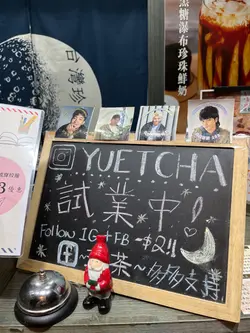 黑糖瀑布珍珠鮮奶
台灣珍
YUETCHA
試業中!
Follow IG+FB -$2!!
~茶~多多支持